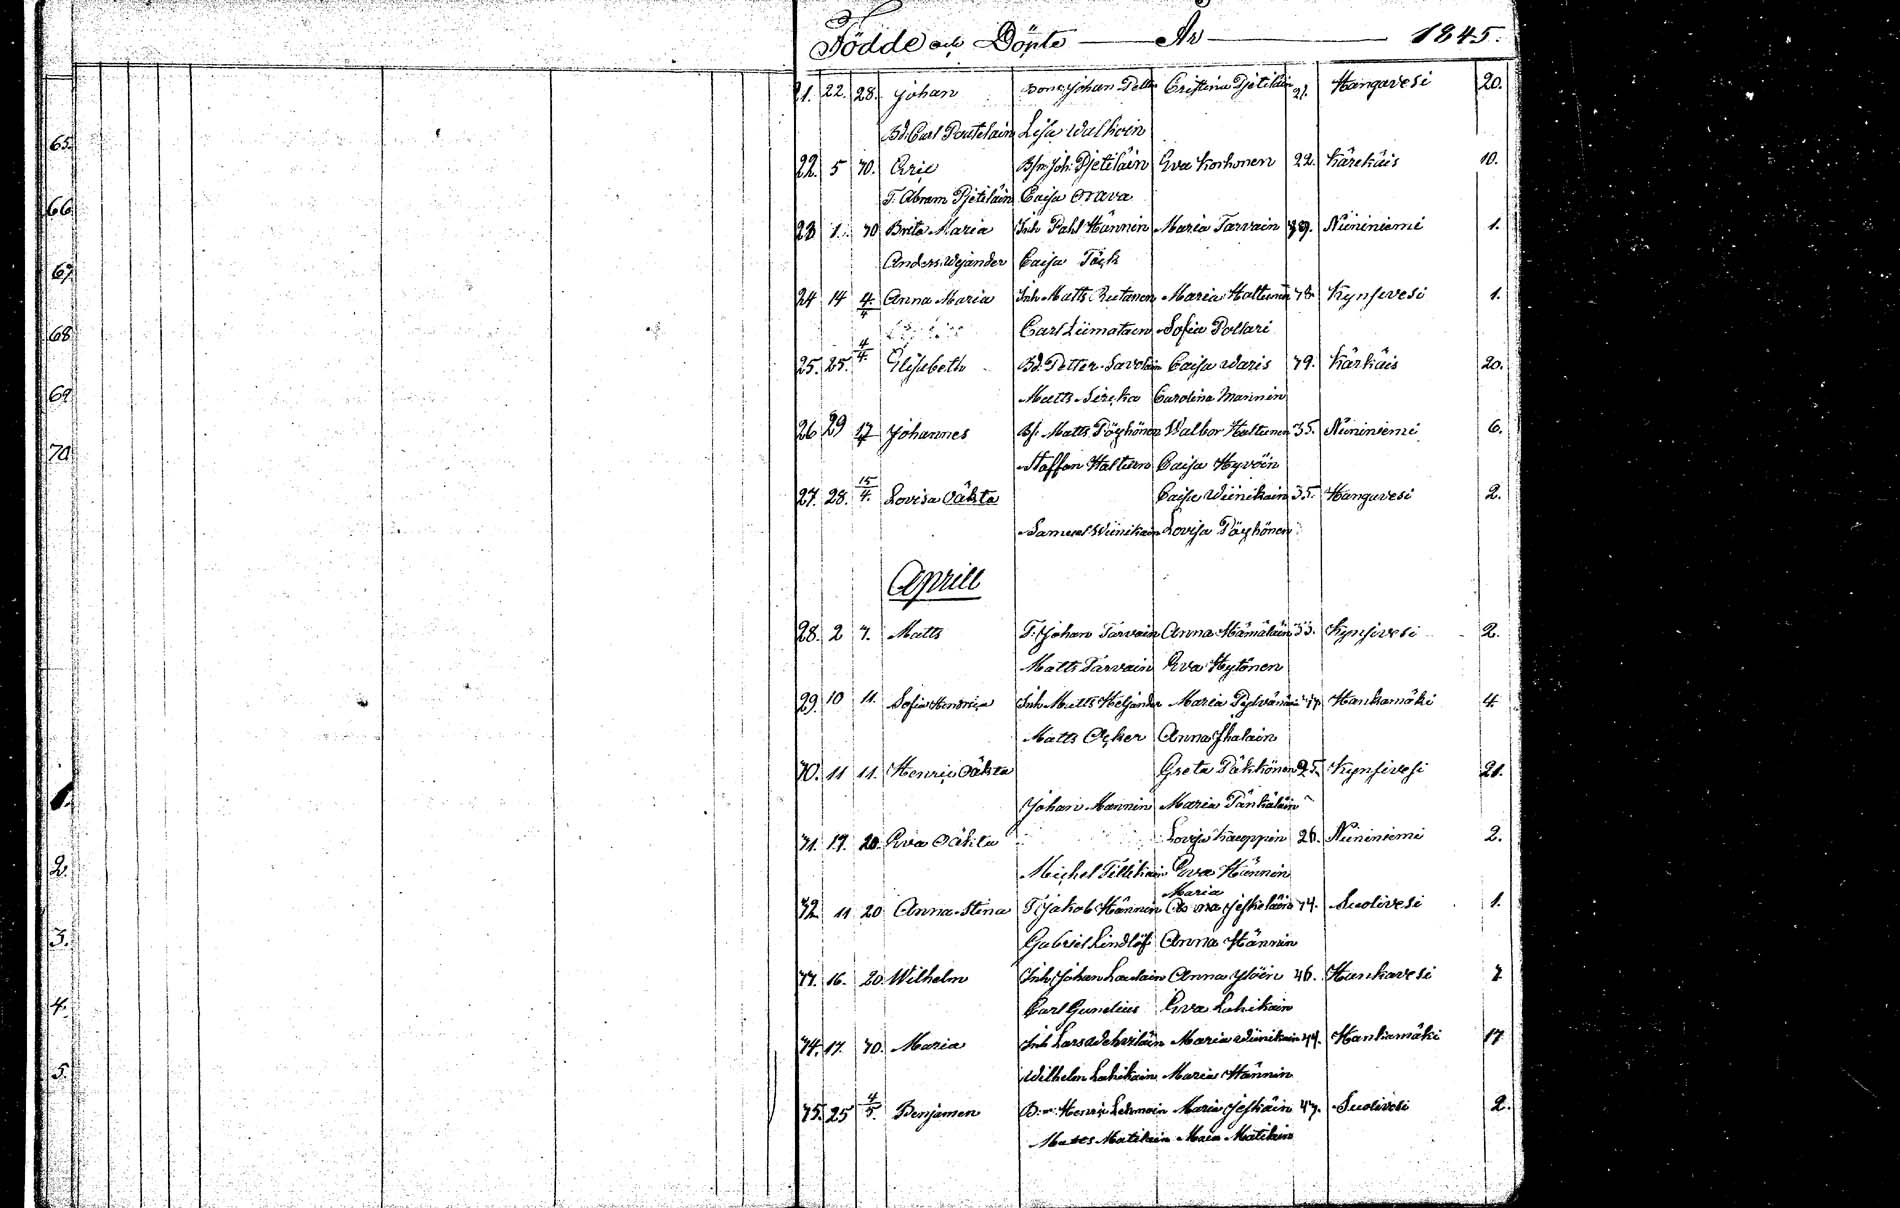 65.
66
67.
68
69
70
1.
2.
3.
4.
5.
Födde och Döpte — År — 1845.
21. 22. 28. Johan Bons. Johan Petter Cristina Pjetiläin 21. Hangavesi 20.
Bd. Carl Poutilain Lisa Walkoin
22. 5 30. Eric B/m Joh. Pjetiläin Eva Korhonen 22. Kärekäis 10.
T. Abram Pjetiläin Caisa Orava
23 1. 30 Brita Maria Inh Pahl Hännin Maria Tarvain 39. Niininiemi 1.
Anders Wejander Caisa Täck
24 14 4/4 Anna Maria Inh Matts Rutanen Maria Haltunin 38. Kynsivesi 1.
Carl Liimatain Sofia Pollari
25. 25. 4/4. Elisabeth Bd. Petter Savolain Caisa Waris 39. Kärkäis 20.
Matts Sirçka Carolina Mannin
26 29 17/4 Johannes B/. Matts Pöyhönen Walbor Haltunen 35. Niininiemi 6.
Staffan Haltunn Caisa Hyvöin
27. 28. 15/4. Lovisa oäkta Caisa Wiinikain 35. Hangavesi 2.
Samuel Wiinikain Lovisa Pöyhönen
Aprill
28. 2 7. Matts T. Johan Tarvain Anna Hämäläin 33. Kynsivesi 2.
Matts Tarvain Eva Hytönen
29. 10 11. Sofia Henrica Inh Matts Heljander Maria Pylvänäin 37. Hankamäki 4.
Matts Açker Anna Ihalain
30. 11 11. Henric oäkta Greta Päkkönen 25. Kynsivesi 21.
Johan Mannin Maria Pänkäläin
31. 17. 20. Eva oäkta Lovisa Kauppin 26. Niininiemi 2.
Michel Tillikain Eva Hännin
Maria
32. 11 20 Anna Stina T. Jakob Hännin Anna Jeskeläin 34. Suolivesi 1.
Gabriel Lindlöf Anna Hännin
33. 16. 20 Wilhelm Inh Johan Laulain Anna Ylöin 46. Hankavesi 7
Carl Gunelius Eva Lukikain
34. 17. 30. Maria Inh Lars Wehviläin Maria Wiinikain 44. Hankamäki 17
Wilhelm Lukikain Maria Hännin
35. 25 4/5. Benjamen B:m Henric Lehmoin Maria Jeskäin 43. Suolivesi 2.
Mattes Matikain Maia Matikain